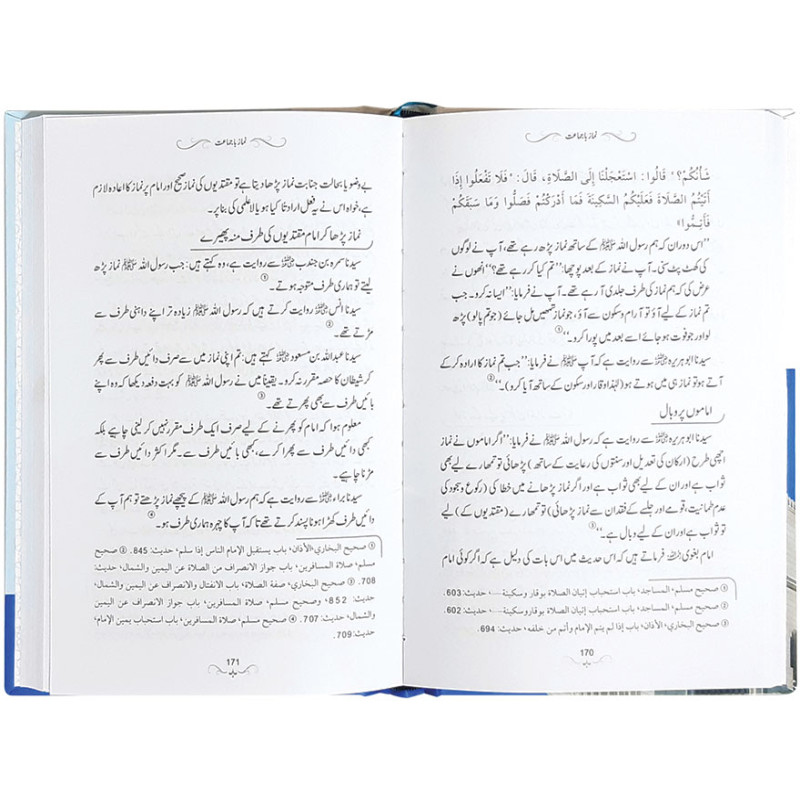 نماز باجماعت
شَأْنُكُمْ؟» قَالُوا: اسْتَعْجَلْنَا إِلَى الصَّلَاةِ، قَالَ: «فَلَا تَفْعَلُوا إِذَا
أَتَيْتُمُ الصَّلَاةَ فَعَلَيْكُمُ السَّكِينَةَ فَمَا أَدْرَكْتُمْ فَصَلُّوا وَمَا سَبَقَكُمْ
فَأَتِمُّوا»
’’اس دوران کہ ہم رسول اللہ ﷺ کے ساتھ نماز پڑھ رہے تھے، آپ نے لوگوں
کی کھٹ پٹ سنی۔ آپ نے نماز کے بعد پوچھا: ’’تم کیا کر رہے تھے؟‘‘ انھوں نے
عرض کی کہ ہم نماز کی طرف جلدی آ رہے تھے۔ آپ نے فرمایا: ’’ایسا نہ کرو۔ جب
تم نماز کے لیے آؤ تو آرام و سکون سے آؤ، جو نماز تمھیں مل جائے (تم پا لو) پڑھ
لو اور جو فوت ہو جائے اسے بعد میں پورا کرو۔‘‘①
سیدنا ابوہریرہ ﷜ سے روایت ہے کہ آپ ﷺ نے فرمایا: ’’جب تم نماز کا ارادہ کر کے
آتے ہو تو نماز ہی میں ہوتے ہو (لہٰذا وقار اور سکون کے ساتھ آیا کرو)۔‘‘②
اماموں پر وبال
سیدنا ابوہریرہ ﷜ سے روایت ہے کہ رسول اللہ ﷺ نے فرمایا: ’’اگر اماموں نے نماز
اچھی طرح (ارکان کی تعدیل اور سنتوں کی رعایت کے ساتھ) پڑھائی تو تمھارے لیے بھی
ثواب ہے اور ان کے لیے بھی ثواب ہے اور اگر نماز پڑھانے میں خطا کی (رکوع و سجود کی
عدم طمانیت، قومے اور جلسے کے فقدان سے نماز پڑھائی) تو تمھارے (مقتدیوں کے) لیے
تو ثواب ہے اور ان کے لیے وبال ہے۔‘‘③
امام بغوی ﷫ فرماتے ہیں کہ اس حدیث میں اس بات کی دلیل ہے کہ اگر کوئی امام
① صحیح مسلم، المساجد، باب استحباب إتيان الصلاة بوقار وسكينة......، حدیث: 603.
② صحیح مسلم، المساجد، باب استحباب إتيان الصلاة بوقار وسكينة......، حدیث: 602.
③ صحیح البخاري، الأذان، باب إذا لم يتم الإمام وأتم من خلفه، حدیث: 694.
170
نماز باجماعت
بے وضو یا بحالت جنابت نماز پڑھا دیتا ہے تو مقتدیوں کی نماز صحیح اور امام پر نماز کا اعادہ لازم
ہے، خواہ اس نے یہ فعل ارادتاً کیا ہو یا لاعلمی کی بنا پر۔
نماز پڑھا کر امام مقتدیوں کی طرف منہ پھیرے
سیدنا سمرہ بن جندب ﷜ سے روایت ہے، وہ کہتے ہیں: جب رسول اللہ ﷺ نماز پڑھ
لیتے تو ہماری طرف متوجہ ہوتے۔①
سیدنا انس ﷜ روایت کرتے ہیں کہ رسول اللہ ﷺ زیادہ تر اپنے داہنی طرف سے
مڑتے تھے۔②
سیدنا عبداللہ بن مسعود ﷜ کہتے ہیں: تم اپنی نماز میں سے صرف دائیں طرف سے پھر
کر شیطان کا حصہ مقرر نہ کرو۔ یقیناً میں نے رسول اللہ ﷺ کو بہت دفعہ دیکھا کہ وہ اپنے
بائیں طرف سے بھی پھرتے تھے۔③
معلوم ہوا کہ امام کو پھرنے کے لیے صرف ایک طرف مقرر نہیں کر لینی چاہیے بلکہ
کبھی دائیں طرف سے پھرا کرے، کبھی بائیں طرف سے۔ مگر اکثر دائیں طرف سے
مڑنا چاہیے۔
سیدنا براء ﷜ سے روایت ہے کہ ہم رسول اللہ ﷺ کے پیچھے نماز پڑھتے تو ہم آپ کے
دائیں طرف کھڑا ہونا پسند کرتے تھے تاکہ آپ کا چہرہ ہماری طرف ہو۔④
① صحیح البخاري، الأذان، باب يستقبل الإمام الناس إذا سلم، حدیث: 845. ② صحیح
مسلم، صلاة المسافرين، باب جواز الانصراف من الصلاة عن اليمين والشمال، حدیث:
708. ③ صحیح البخاري، صفة الصلاة، باب الانفتال والانصراف عن اليمين والشمال،
حدیث: 852، وصحيح مسلم، صلاة المسافرين، باب جواز الانصراف عن اليمين
والشمال، حدیث: 707. ④ صحیح مسلم، صلاة المسافرين، باب استحباب يمين الإمام،
حدیث: 709.
171